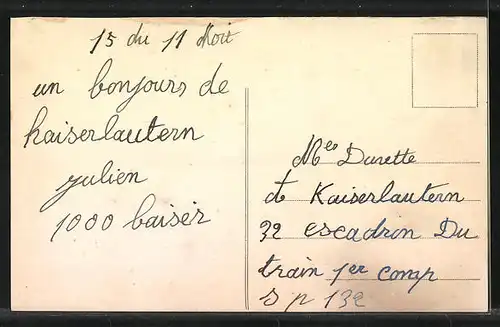 15 du 11 Moit
un bonjours de
kaiserlautern
julien
1000 baiser
Mes Durette
de Kaiserlautern
32 escadron Du
train 1er comp
s p 132